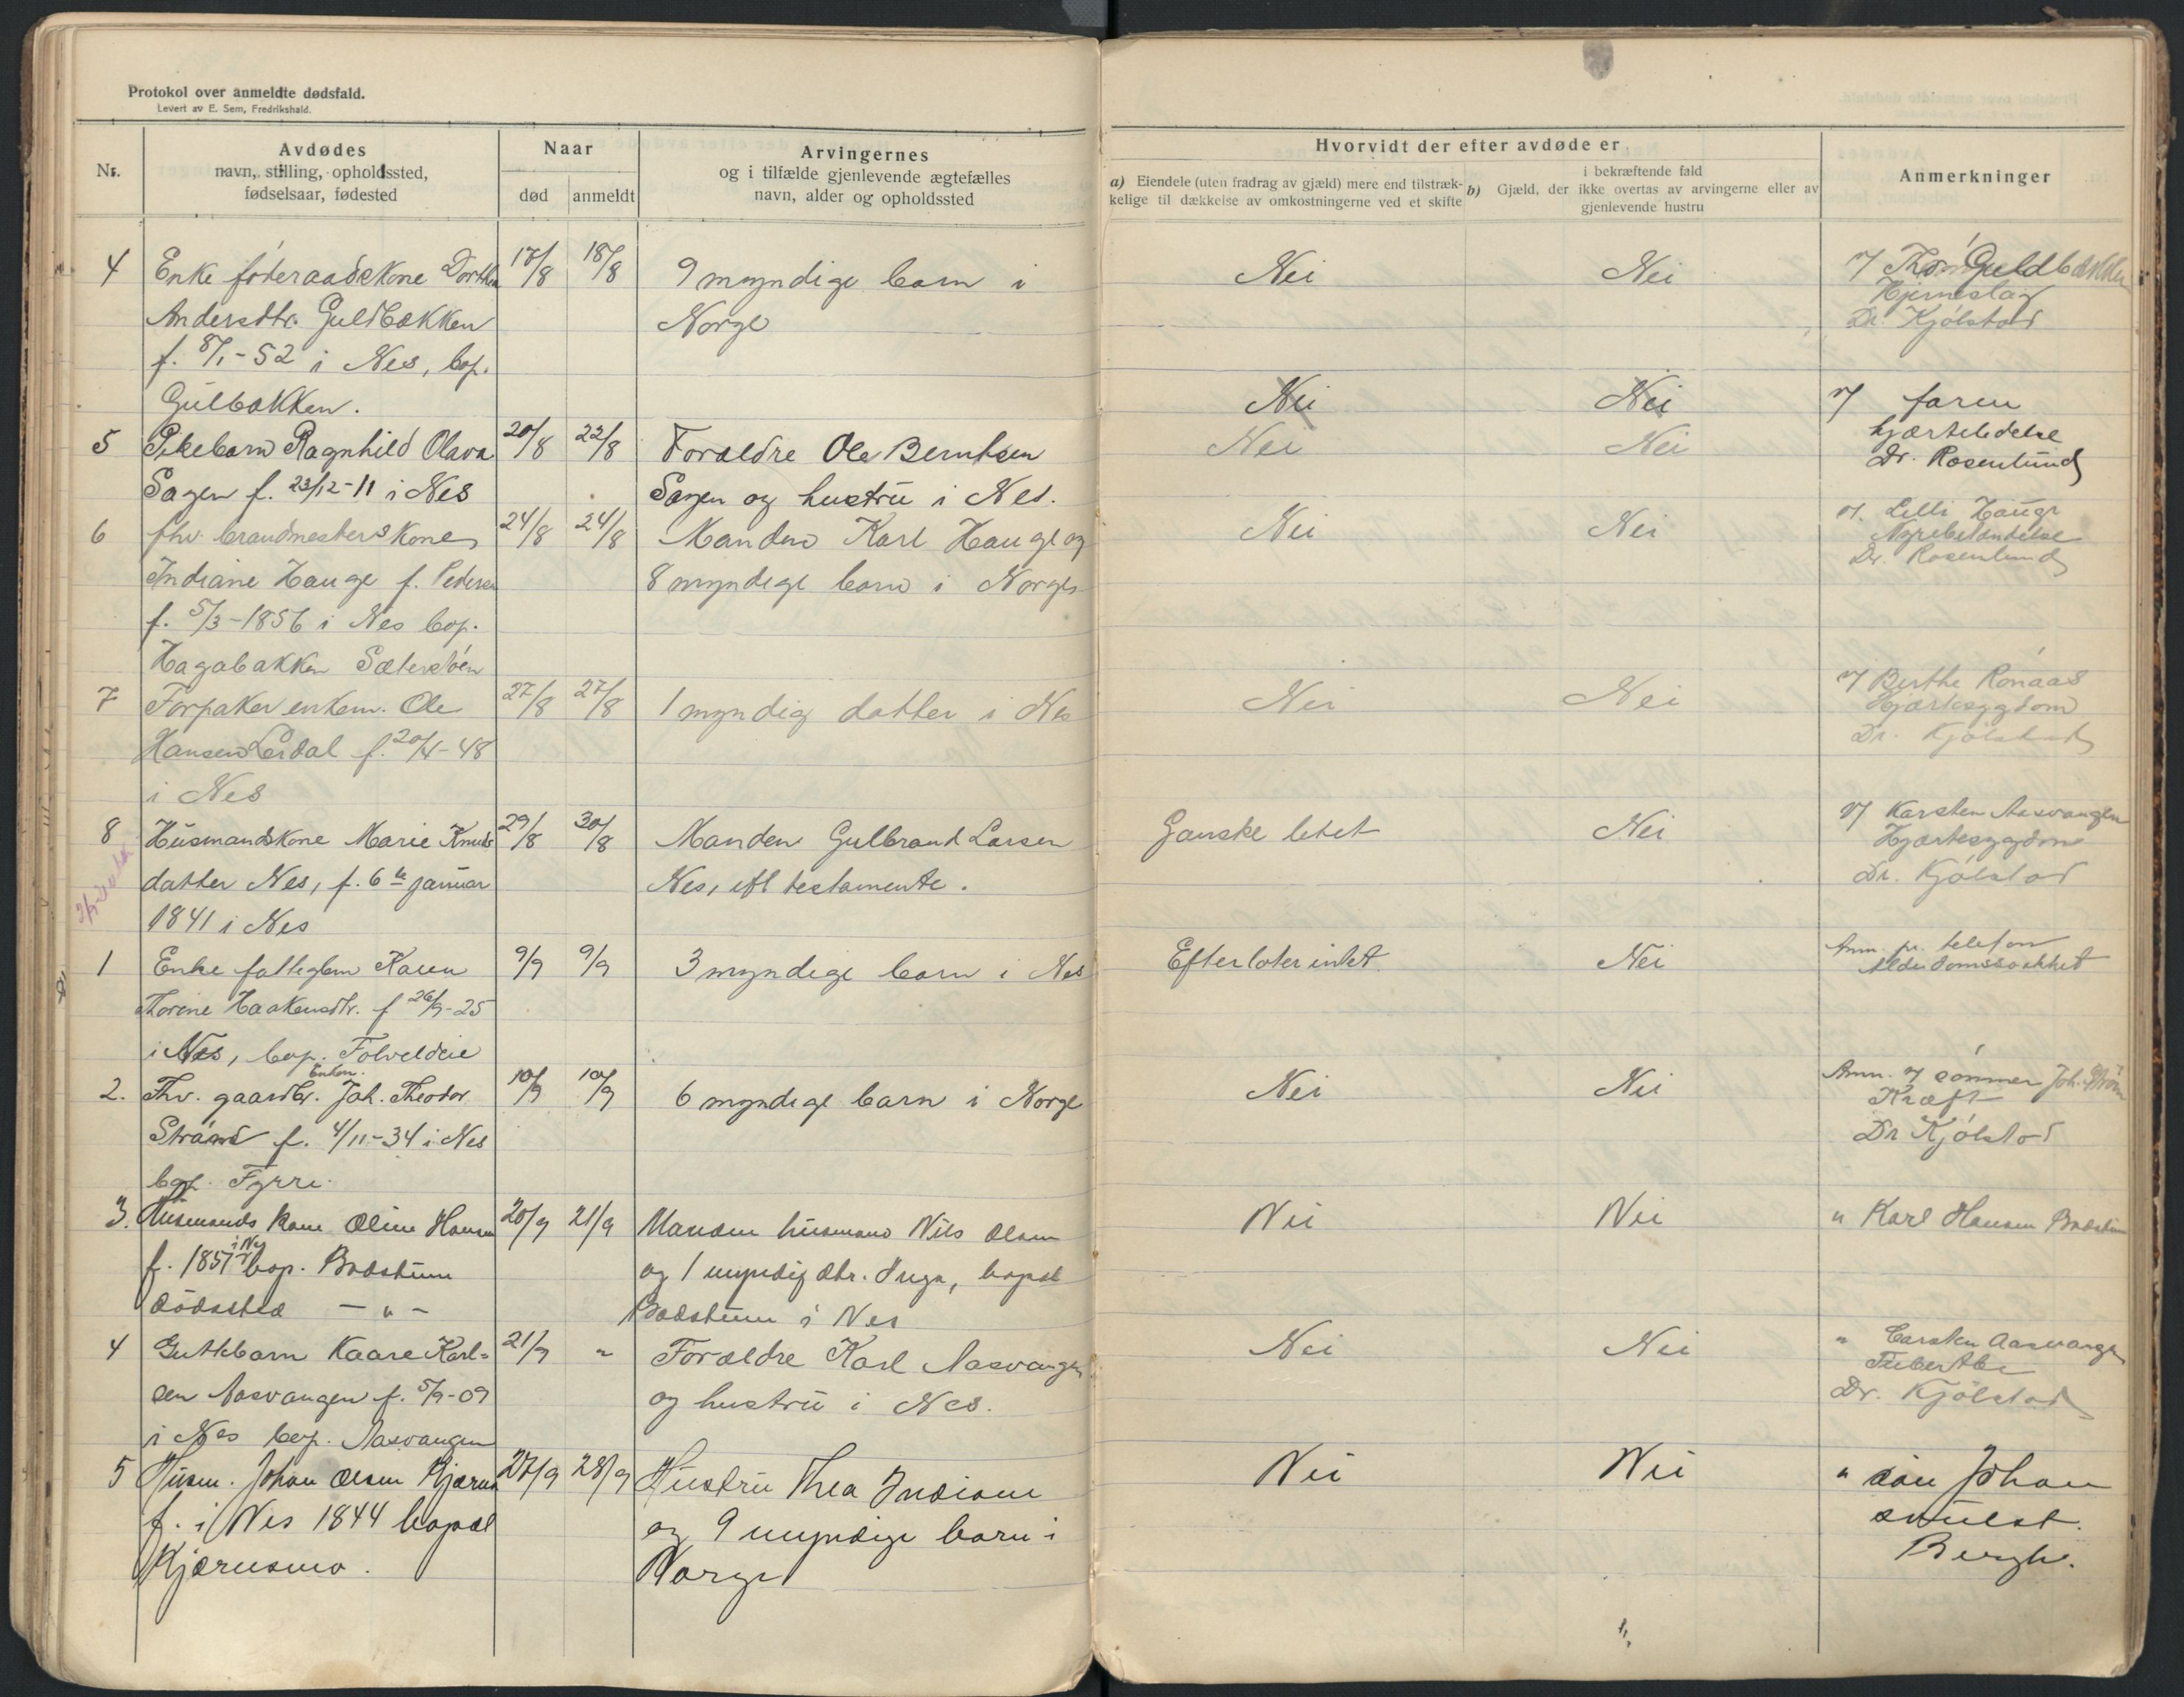 Protokol over anmeldte dødsfald.
Levert av E. Sem, Fredrikshald.
Nr.
Avdødes
navn, stilling, opholdssted,
fødselsaar, fødested
Naar
død
anmeldt
Arvingernes
og i tilfælde gjenlevende ægtefælles
navn, alder og opholdssted
Hvorvidt der efter avdøde er
a) Eiendele (uten fradrag av gjæld) mere end tilstræk-
kelige til dækkelse av omkostningerne ved et skifte
i bekræftende fald
b) Gjæld, der ikke overtas av arvingerne eller av
gjenlevende hustru
Anmerkninger
4 Enke føderaadskone Dorthea 17/8 18/8 9 myndige barn i Nei Nei v/ Guldbækken
Andersdtr. Guldbækken Norge Hjerneslag
f. 8/1-52 i Nes, bop. Dr. Kjølstad
Gulbakken.
Nei Nei v/ faren
5 Pikebarn Ragnhild Olava 20/8 22/8 Forældre Ole Berntsen Nei Nei hjærtelidelse
Sagen f. 23/12-11 i Nes Sagen og hustru i Nes. Dr. Rosenlund
6 fhv. brandmesters kone 24/8 24/8 Manden Karl Hauge og Nei Nei v. Lilli Hauge
Indiane Hauge f. Pedersen 8 myndige barn i Norge Nyrebetændelse
f. 5/3-1856 i Nes bop. Dr. Rosenlund
Hagabakken Sæterstøen
7 Forpakter enkem. Ole 27/8 27/8 1 myndig datter i Nes Nei Nei v/ Berthe Rønaas
Hansen Lerdal f. 20/4-48 Hjærtesygdom
i Nes Dr. Kjølstad
8 Husmandskone Marie Knuds 29/8 30/8 Manden Gulbrand Larsen Ganske litet Nei v/ Karsten Aasvangen
datter Nes, f. 6te januar Nes, ifl testamente. Hjærtesygdom
1841 i Nes Dr. Kjølstad
1 Enke fattiglem Karen 9/9 9/9 3 myndige barn i Nes Efterlater intet Nei Anm. pr. telefon
Thorine Haakensdtr. f 26/9-25 Alderdomssvakhet
i Nes, bop.
Enkem.
2. Fhv. gaardbr. Joh. Theodor 10/9 10/9 6 myndige barn i Norge Nei Nei Anm. v/ sønnen Joh. Strøm
f. 4/11-34 i Nes Kræft
bop. Fyrri. Dr Kjølstad
3. Husmands kone Oline Hansen 20/9 21/9 Manden husmand Nils Olsen Nei Nei " Karl Hansen
i Nes
f. 1857 bop. og 1 myndig dtr. Inga, bopæl
dødssted — " — i Nes
4 Guttebarn Kaare Karl= 21/9 " Forældre Karl Aasvangen Nei Nei " Carsten Aasvangen
sen Aasvangen f. 5/9-09 og hustru i Nes.
i Nes bop. Aasvangen Dr. Kjølstad
5 Husm. Johan Olsen 27/9 28/9 Hustru Thea Indiane Nei Nei " søn Johan
f. i Nes 1844 bopæl og 9 myndige barn i svulst.
Kjærnsmo. Norge Bergh.